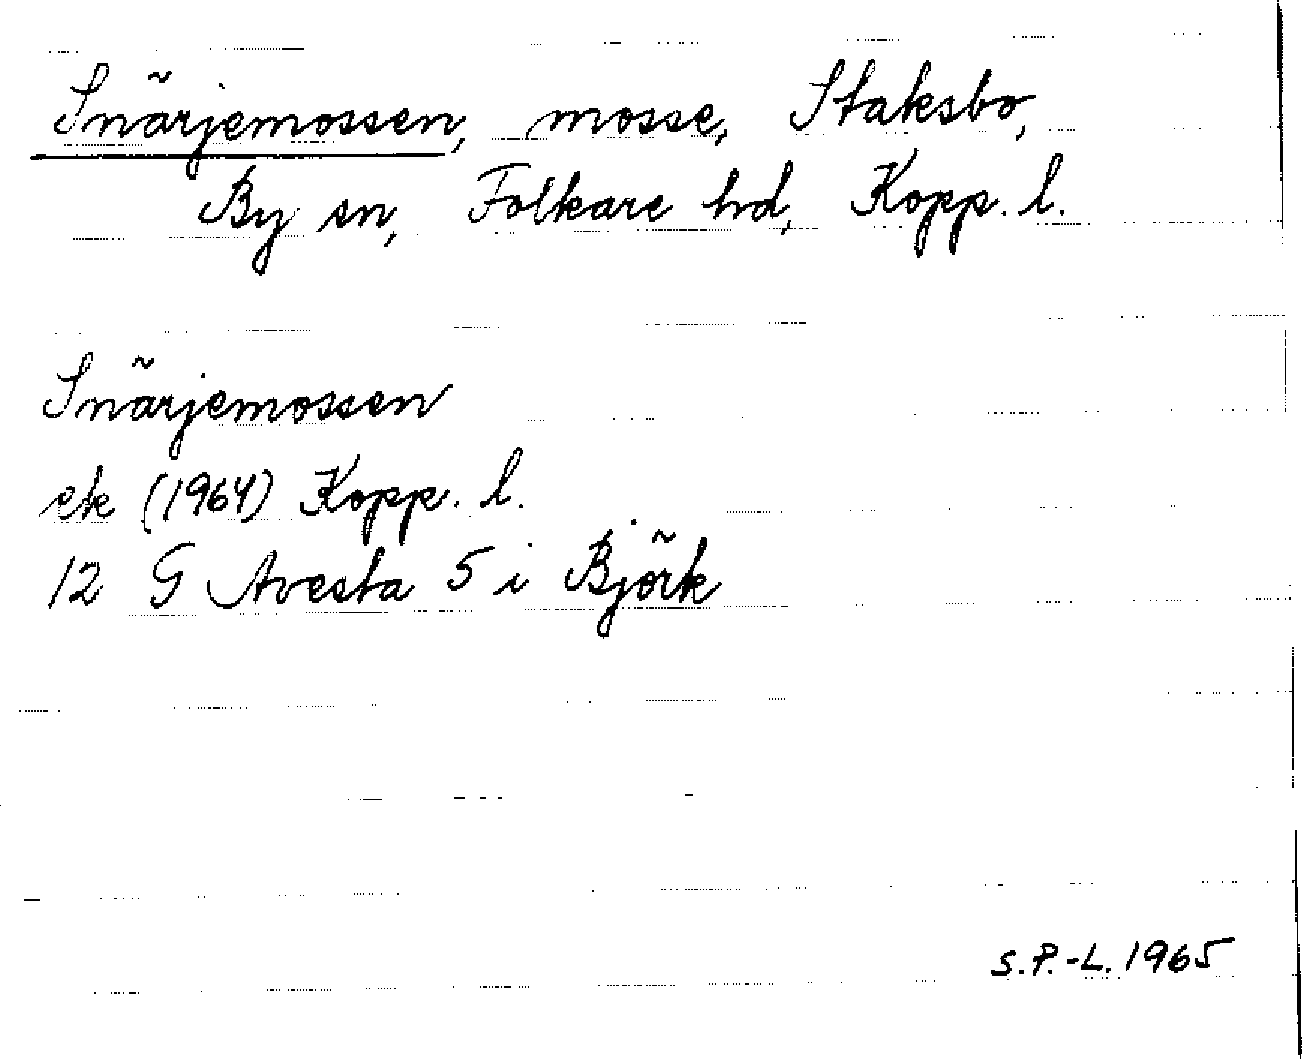 Snärjemossen, mosse, Staksbo,
By sn, Folkare hd, Kopp. l.
Snärjemossen
ek (1964) Kopp. l.
12 G Avesta 5 i Björk
S.P.-L. 1965